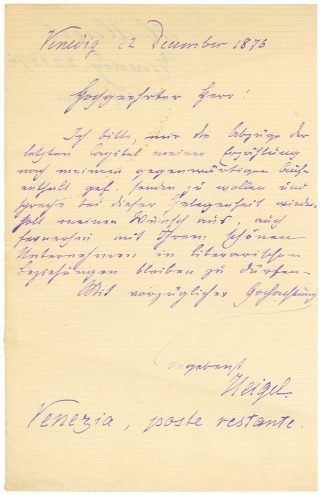 Venedig 12 December 1876
Hochgeehrter Herr!
Ich bitte, mir die Abzüge der
letzten Capitel meiner Erzählung
nach meinem gegenwärtigen Auf-
enthalt gef. senden zu wollen und
spreche bei dieser Gelegenheit wieder-
holt meinen Wunsch aus, auch
fernerhin mit Ihrem schönen
Unternehmen in literarischen
Beziehungen bleiben zu dürfen.
Mit vorzüglicher Hochachtung
ergebenst
Heigel.
Venezia, poste restante.